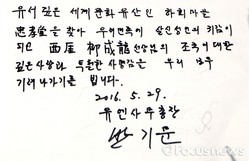 유서 깊은 세계 문화 유산인 하회마을
忠孝堂을 찾아 우리 민족의 살신성인의 귀감이
되신 西厓 柳成龍 선생님의 조국에 대한
깊은 사랑과 투철한 사명감을 우리 모두
기려나가기를 빕니다.
2016. 5. 29.
유엔사무총장
반기문
Focusnews